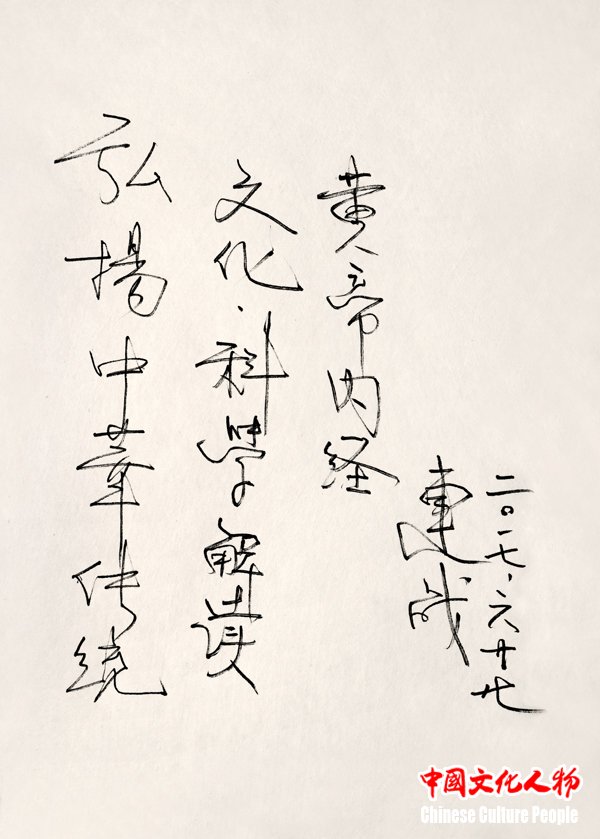 弘揚中華传统
文化·科学解读
黄帝内经
連成
二〇一七·六廿七
中国文化人物
Chinese Culture People